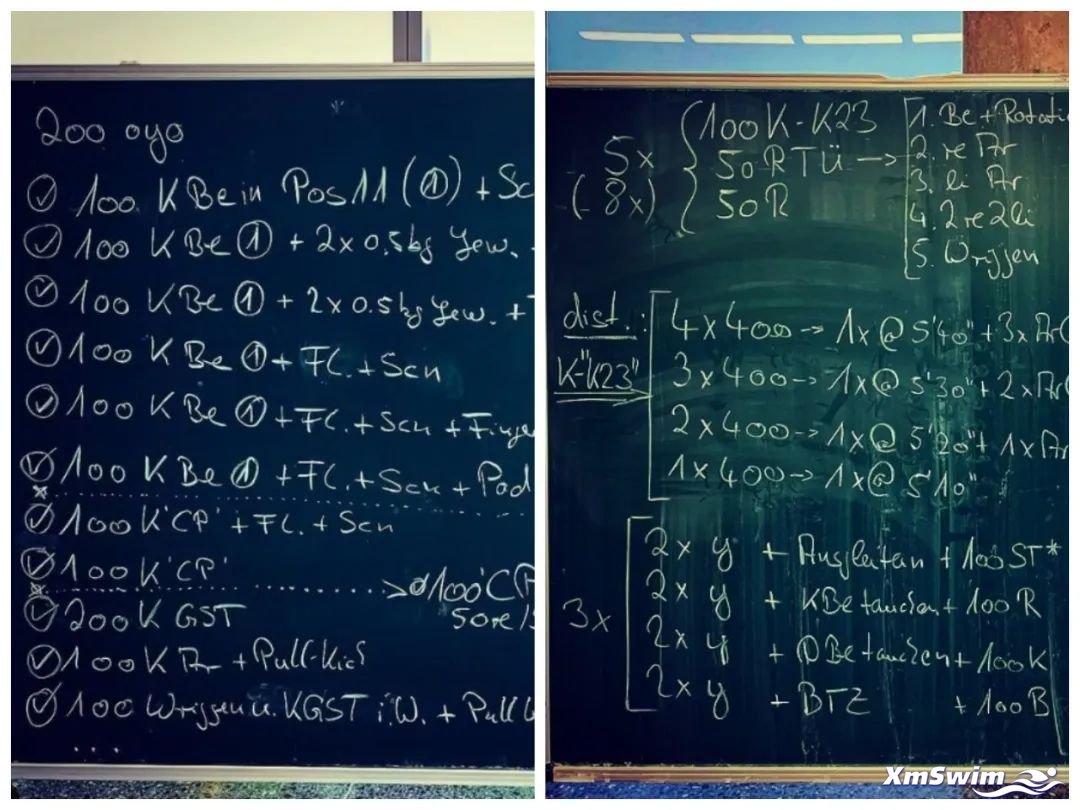 200 oyo
100 K Be in Pos 11 (1) + Sc
100 K Be ① + 2x 0.5kg Gew.
100 K Be ① + 2x 0.5kg Gew. +
100 K Be ① + FL. + Scn
100 K Be ① + FL. + Scn + Finge
100 K Be ① + FL. + Scn + Pad
100 K 'CP' + FL. + Scn
100 K 'CP'
100 'CP
200 K GST
50 re/
100 K Ar + Pull-Kick
100 Wriggen u. KGST i.W. + Pull
...
5x
(8x)
100 K - K23
50 RTÜ →
50 R
1. Be + Rotati
2. re Ar
3. li Ar
4. 2 re 2 li
5. Wriggen
dist.:
K-"K23"
4 x 400 → 1x @ 5'40" + 3x Ar
3 x 400 → 1x @ 5'30" + 2x Ar
2 x 400 → 1x @ 5'20" + 1x Ar
1 x 400 → 1x @ 5'10"
3x
2x y + Ausgleiten + 100 ST*
2x y + KBe tauchen + 100 R
2x y + DBe tauchen + 100 K
2x y + BTZ + 100 B
XmSwim